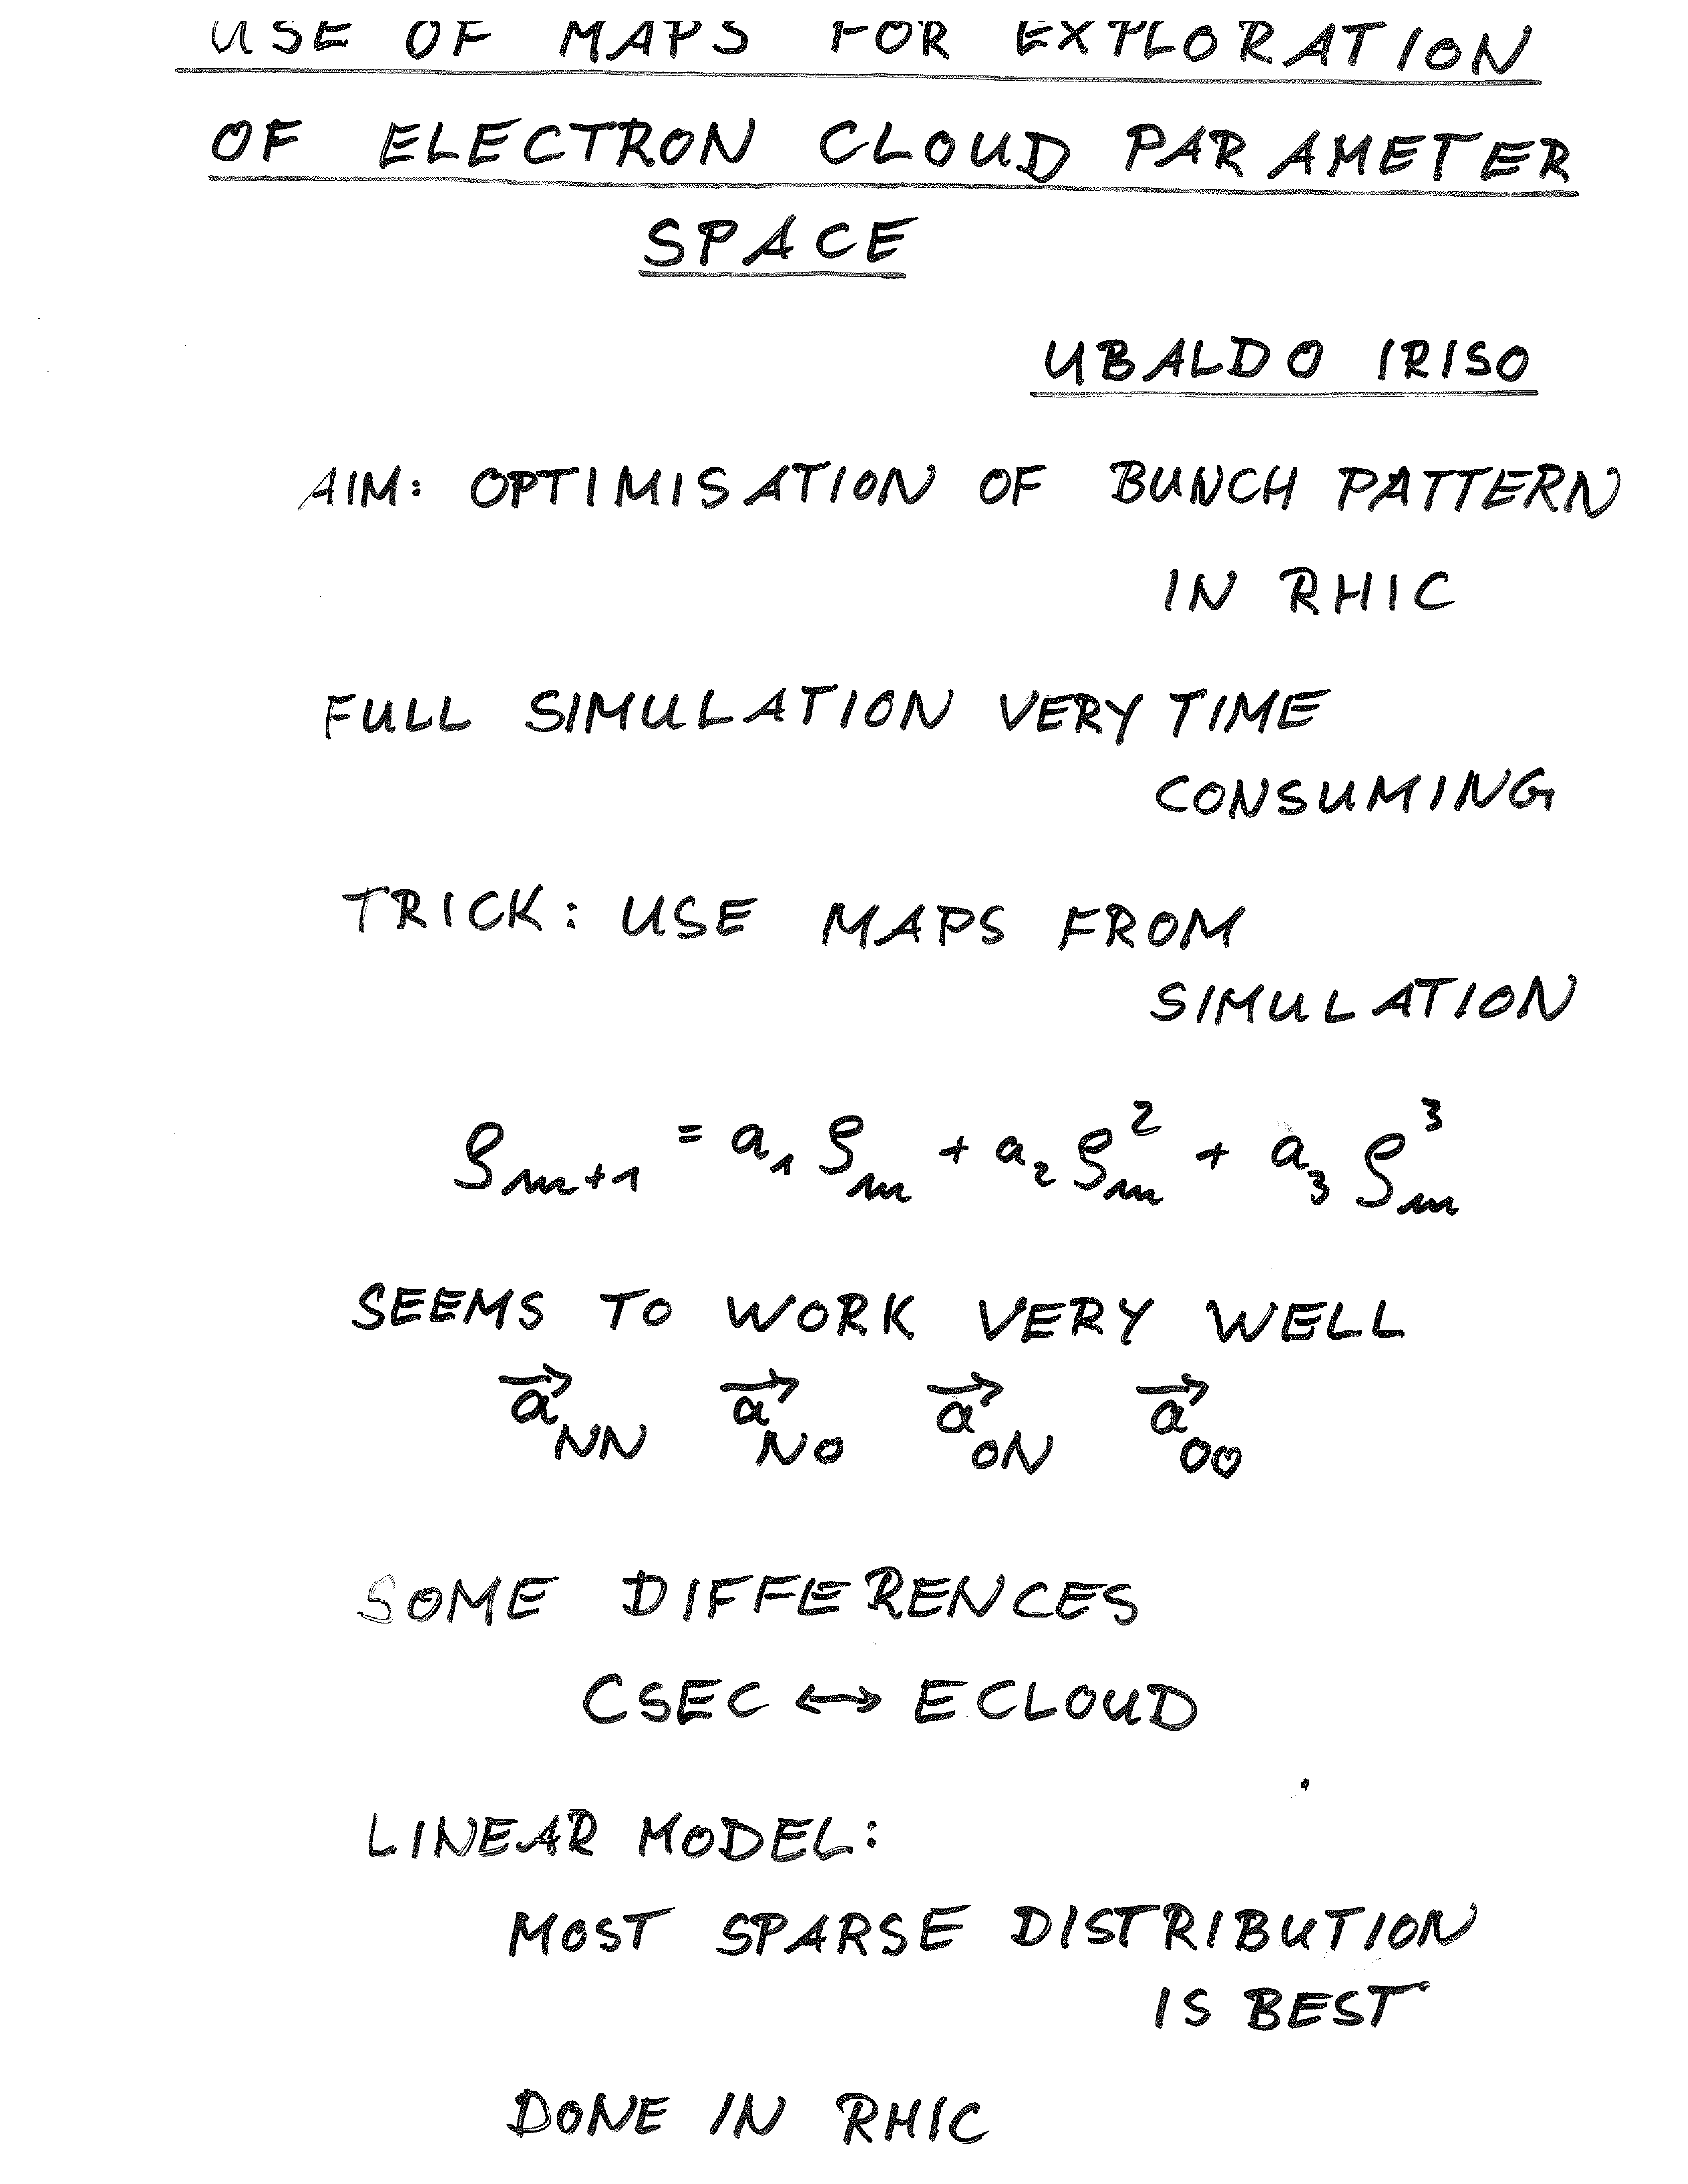 USE OF MAPS FOR EXPLORATION
OF ELECTRON CLOUD PARAMETER
SPACE
UBALDO IRISO
AIM: OPTIMISATION OF BUNCH PATTERN
IN RHIC
FULL SIMULATION VERY TIME
CONSUMING
TRICK: USE MAPS FROM
SIMULATION
ρₘ₊₁ = a₁ ρₘ + a₂ ρₘ² + a₃ ρₘ³
SEEMS TO WORK VERY WELL
a⃗_NN a⃗_NO a⃗_ON a⃗_OO
SOME DIFFERENCES
CSEC ↔ ECLOUD
LINEAR MODEL:
MOST SPARSE DISTRIBUTION
IS BEST
DONE IN RHIC